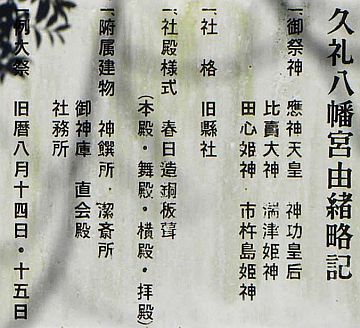 久礼八幡宮由緒略記
一御祭神 應神天皇 神功皇后
比賣大神 湍津姫神
田心姫神 市杵島姫神
一社格 旧縣社
一社殿様式 春日造銅板葺
(本殿・舞殿・横殿・拝殿)
一附属建物 神饌所・潔斎所
御神庫 直会殿
社務所
一例大祭 旧暦八月十四日・十五日